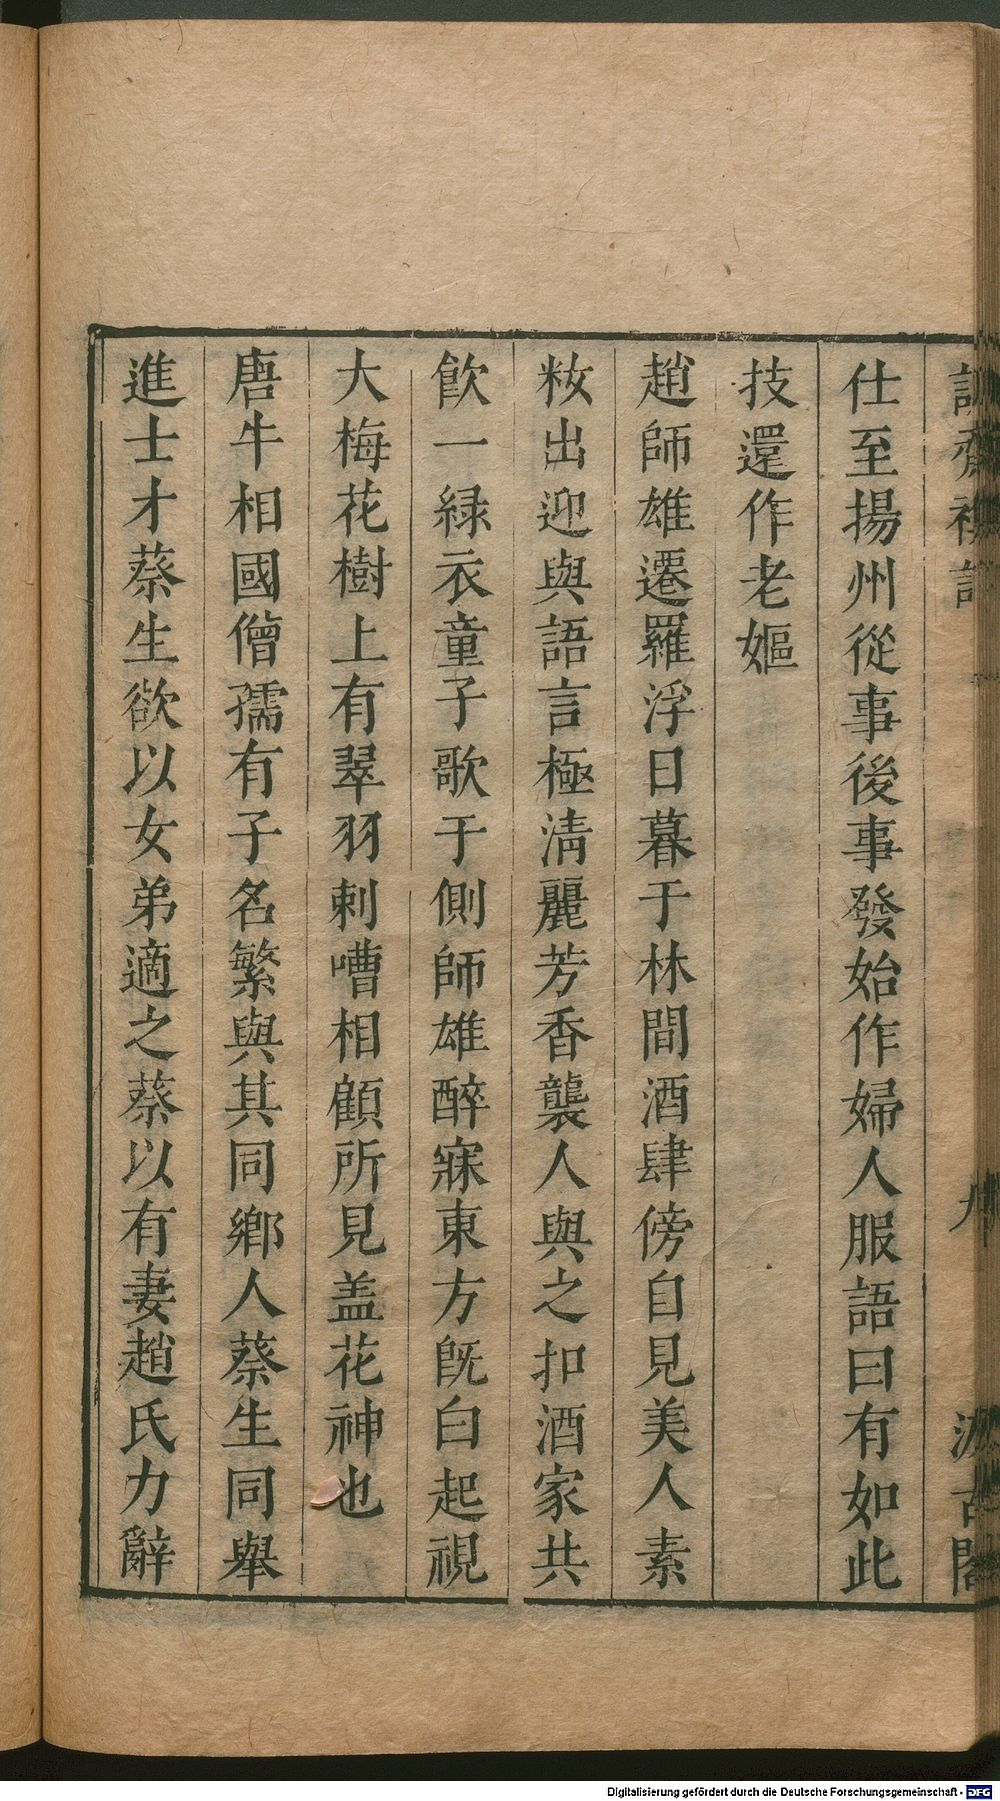 仕至揚州從事後事發始作婦人服語曰有如此
技還作老嫗
趙師雄遷羅浮日暮于林間酒肆傍自見美人素
籹出迎與語言極淸麗芳香襲人與之扣酒家共
飮一緑衣童子歌于側師雄醉寐東方旣白起視
大梅花樹上有翠羽剌嘈相顧所見盖花神也
唐牛相國僧孺有子名繁與其同鄉人蔡生同舉
進士才蔡生欲以女弟適之蔡以有妻趙氏力辭
Digitalisierung gefördert durch die Deutsche Forschungsgemeinschaft - DFG